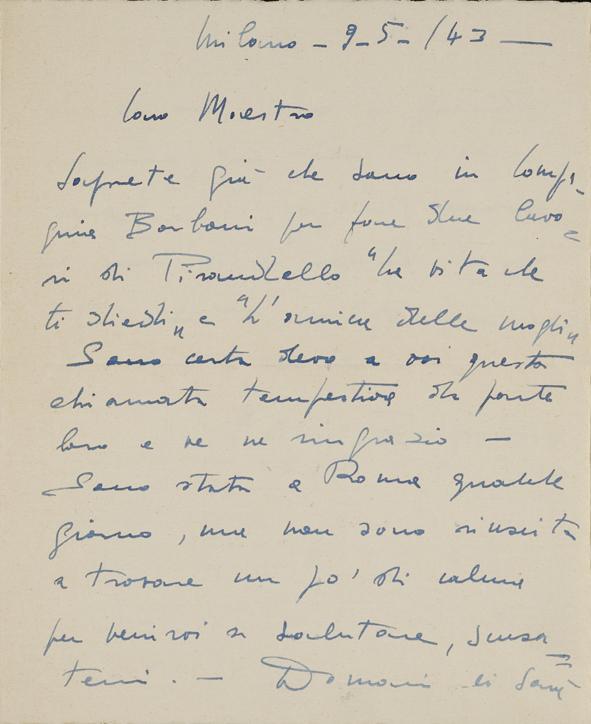 Milano - 9-5-/43 —
Caro Maestro
Saprete già che sono in Compa-
gnia Borboni per fare due lavo=
ri di Pirandello "La vita che
ti diedi" e "L'amica delle mogli"
Sono certa devo a voi questa
chiamata tempestiva da parte
loro e ve ne ringrazio -
Sono stata a Roma qualche
giorno, ma non sono riuscita
a trovare un po' di calma
per venirvi a salutare, scusa=
temi. - Domani ci sarà